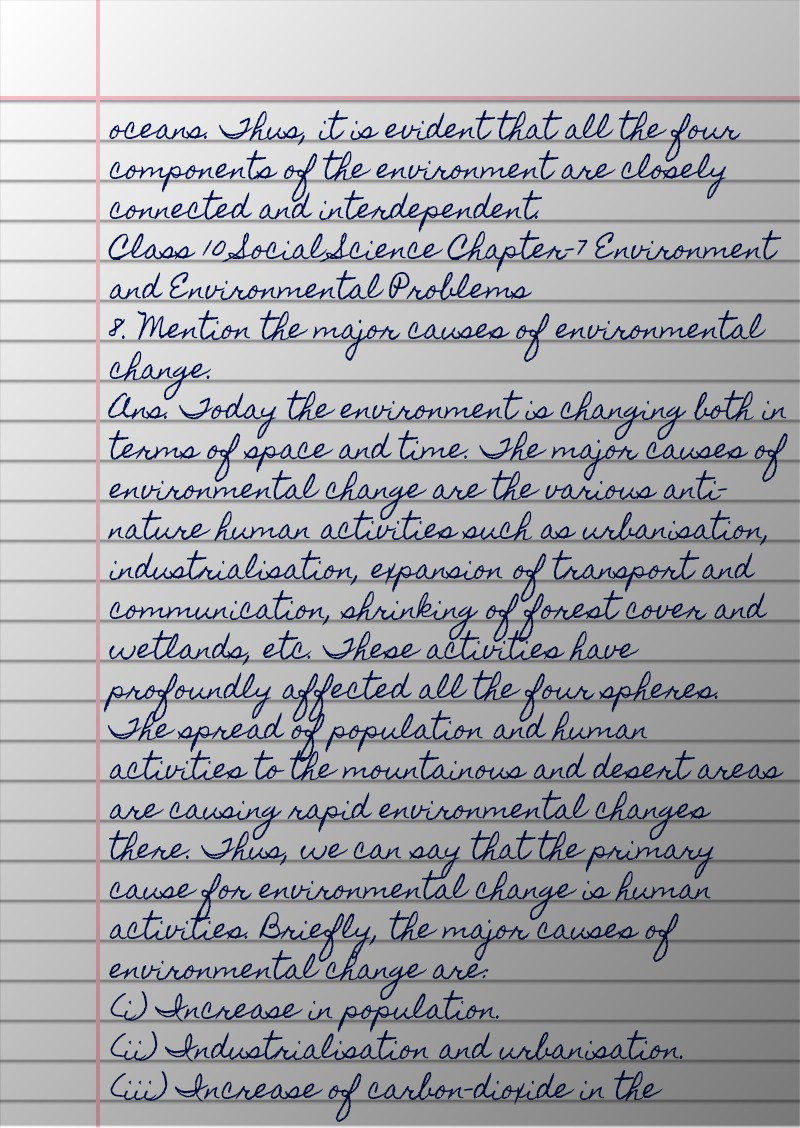 oceans. Thus, it is evident that all the four
components of the environment are closely
connected and interdependent.
Class 10 Social Science Chapter-7 Environment
and Environmental Problems
8. Mention the major causes of environmental
change.
Ans. Today the environment is changing both in
terms of space and time. The major causes of
environmental change are the various anti-
nature human activities such as urbanisation,
industrialisation, expansion of transport and
communication, shrinking of forest cover and
wetlands, etc. These activities have
profoundly affected all the four spheres.
The spread of population and human
activities to the mountainous and desert areas
are causing rapid environmental changes
there. Thus, we can say that the primary
cause for environmental change is human
activities. Briefly, the major causes of
environmental change are:
(i) Increase in population.
(ii) Industrialisation and urbanisation.
(iii) Increase of carbon-dioxide in the